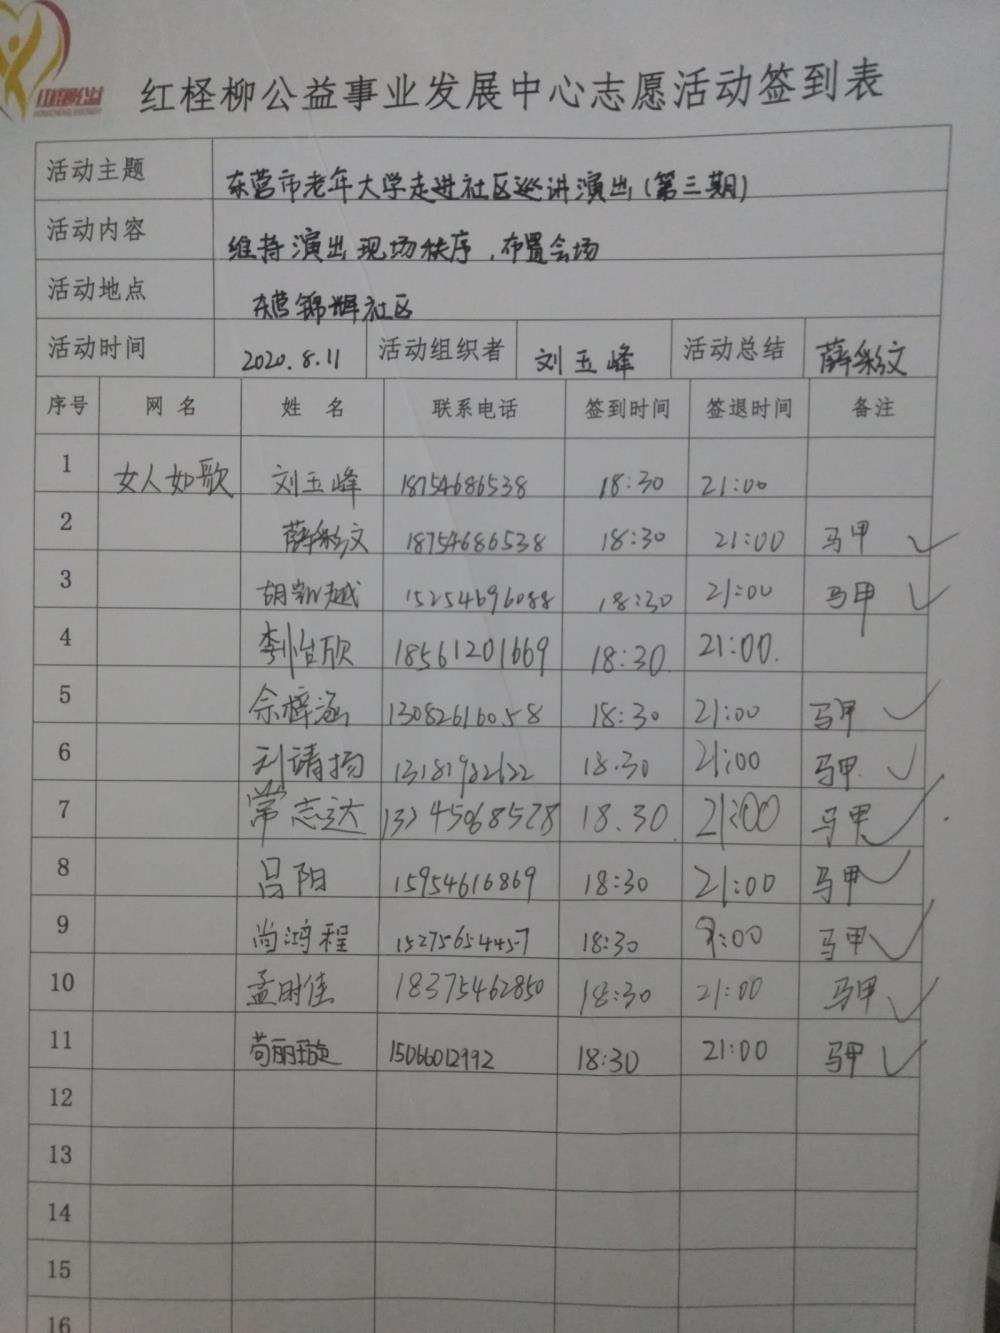 红柽柳公益
红柽柳公益事业发展中心志愿活动签到表
活动主题 东营市老年大学走进社区巡讲演出(第三期)
活动内容 维持演出现场秩序,布置会场
活动地点 东营锦辉社区
活动时间 2020.8.11 活动组织者 刘玉峰 活动总结 薛彩纹
序号 网名 姓名 联系电话 签到时间 签退时间 备注
1 女人如歌 刘玉峰 18754686538 18:30 21:00
2 薛彩纹 18754686538 18:30 21:00 马甲 ✓
3 胡凯越 15254696088 18:30 21:00 马甲 ✓
4 李怡欣 18561201669 18:30 21:00
5 佘梓涵 13082616058 18:30 21:00 马甲 ✓
6 刘靖扬 13181982622 18.30 21:00 马甲 ✓
7 常志达 18.30 21:00 马甲 ✓
8 吕阳 15954616869 18:30 21:00 马甲 ✓
9 尚鸿程 15275654457 18:30 9:00 马甲 ✓
10 孟时佳 18375462850 18:30 21:00 马甲 ✓
11 苟丽璇 15066012992 18:30 21:00 马甲 ✓
12
13
14
15
16